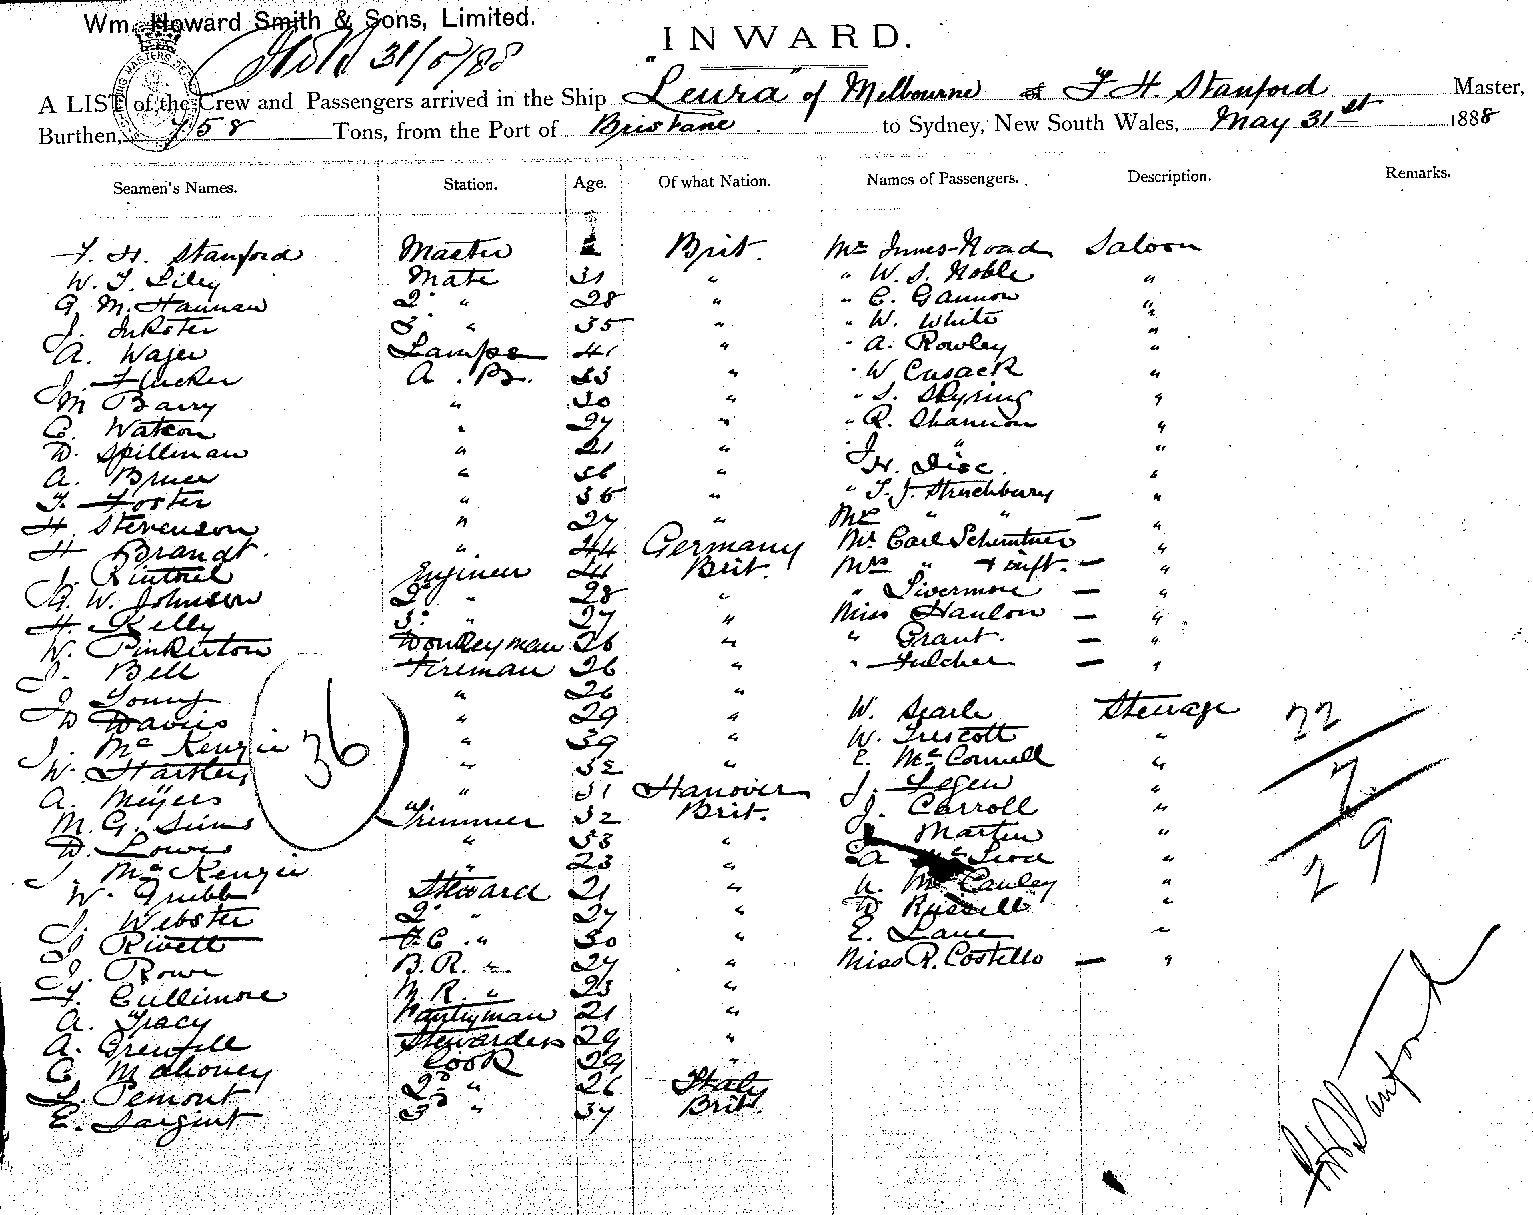 Wm. Howard Smith & Sons, Limited.
31/5/88
INWARD.
A LIST of the Crew and Passengers arrived in the Ship "Leura" of Melbourne F H. Stanford Master,
Burthen, 758 Tons, from the Port of Brisbane to Sydney, New South Wales, May 31st 1888
Seamen's Names. Station. Age. Of what Nation. Names of Passengers. Description. Remarks.
F. H. Stanford Master Brit. Mr Innes-Noad Saloon
W. T. Liley Mate 31 " " W. S. Noble "
G. M. Hannan 2d " 28 " " C. Gannon "
J. Inkster 3d " 35 " " W. White "
A. Wajer Lamps 41 " " A. Rowley "
J. Flucker A. B. 33 " " W Cusack "
M Barry " 30 " " S. Skyring "
C. Watson " 27 " " R. Shannon "
D. Spillman " 21 " J. " "
A. Bruce " 36 " H. "
F. Foster " 35 " " T. J. Struchbury "
H. Stevenson " 27 " " " — "
H Brandt. " 44 Germany Mr Carl "
J. Engineer 41 Brit. Mrs " + inft. — "
G. W. Johnson 2d " 28 " " Livermore — "
H. Kelly 3d " 27 " Miss Hanlon — "
W. Pinkerton Donkeyman 26 " " Grant. — "
J. Bell Fireman 26 " " Fulcher — "
J Young " 26 "
D Davis " 29 " W. Searle Steerage 22
J. McKenzie " 39 " W. Trescott "
W. Hartley " 32 " E. McConnell " 7
A. Meyers " 31 Hanover J. Fegen "
M. G. Sims Trimmer 32 Brit. J. Carroll "
D. Lowe " 33 " J Martin " 29
J. McKenzie " 23 " A "
W. Grubb Steward 21 " A. McCauley "
J. Webster 2d " 27 " D Russell "
J Rivett F.C. " 30 " E. Lane "
J. Rowe B. R. " 27 " Miss R. Costello — "
F. Cullimore M. R. " 23 "
A. Tracy Pantryman 21 "
A. Grenfell Stewardess 29 "
C. Mahoney Cook 29 "
Pemont 2d " 26 Italy
E. Sargint 3d " 37 Brit.
36
F H Stanford